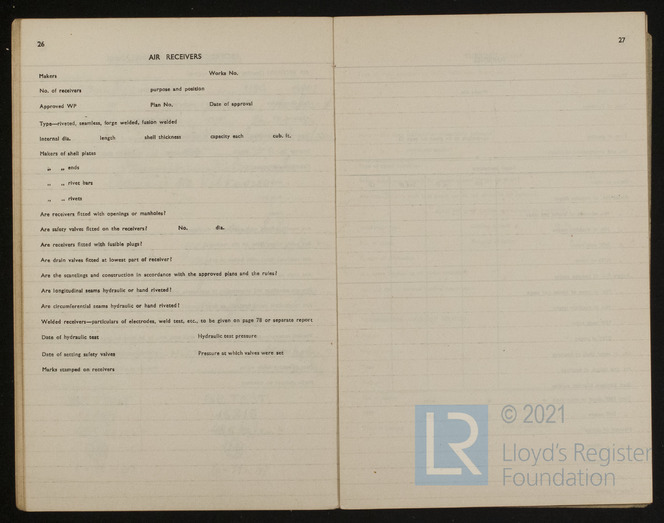 26
AIR RECEIVERS
Makers Works No.
No. of receivers purpose and position
Approved WP Plan No. Date of approval
Type—riveted, seamless, forge welded, fusion welded
Internal dia. length shell thickness capacity each cub. ft.
Makers of shell plates
„ „ ends
„ „ rivet bars
„ „ rivets
Are receivers fitted with openings or manholes?
Are safety valves fitted on the receivers? No. dia.
Are receivers fitted with fusible plugs?
Are drain valves fitted at lowest part of receiver?
Are the scantlings and construction in accordance with the approved plans and the rules?
Are longitudinal seams hydraulic or hand riveted?
Are circumferential seams hydraulic or hand riveted?
Welded receivers—particulars of electrodes, weld test, etc., to be given on page 78 or separate report
Date of hydraulic test Hydraulic test pressure
Date of setting safety valves Pressure at which valves were set
Marks stamped on receivers
27
LR
© 2021
Lloyd's Register
Foundation